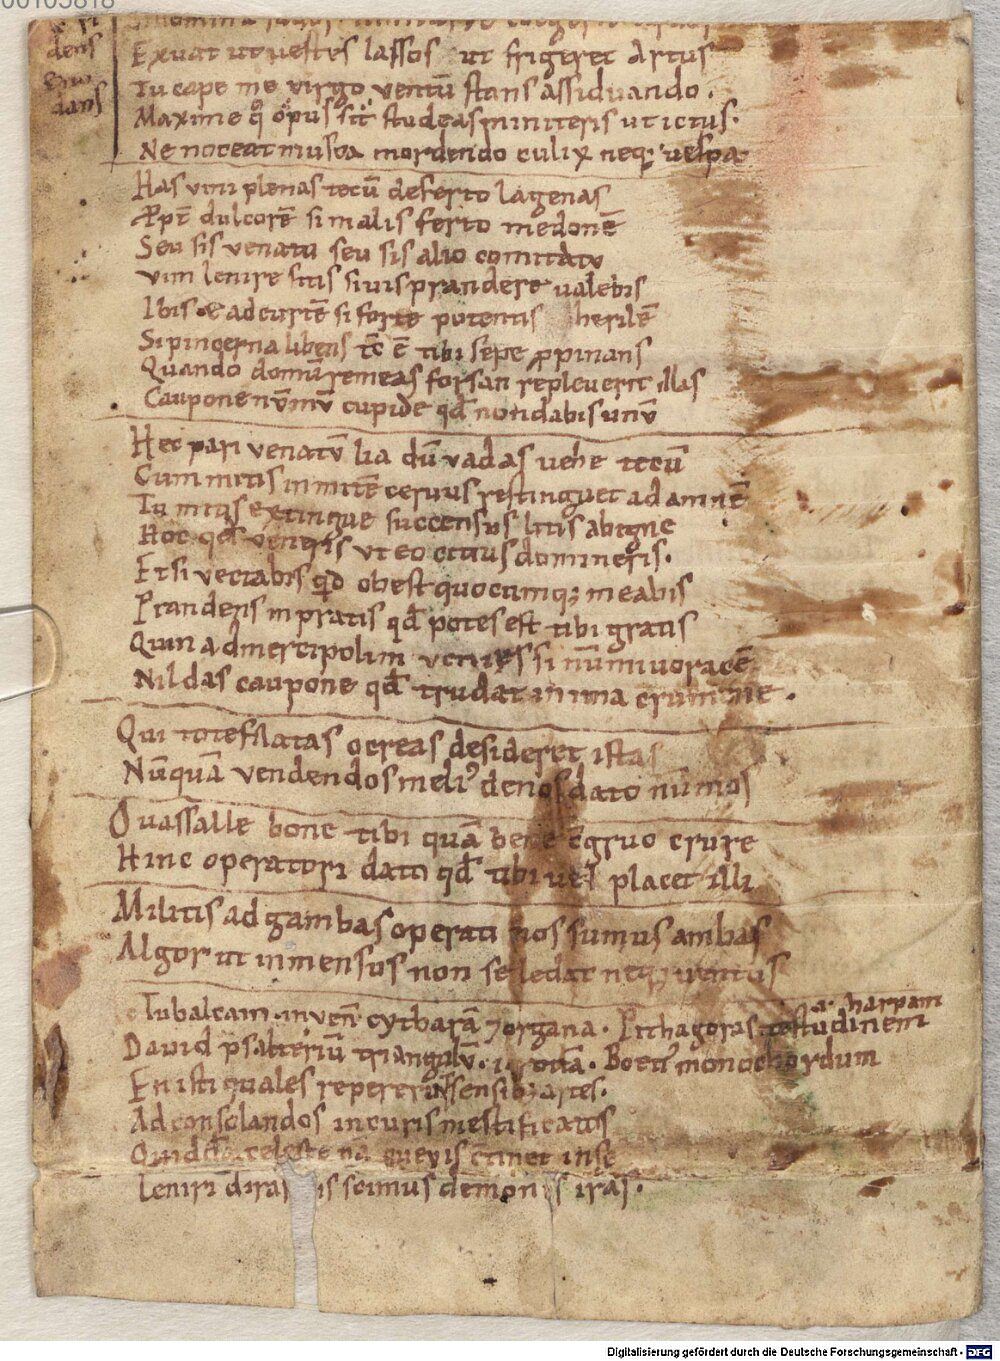 00105818
dens
dans
Exuat ut uestes lassos ut frigeret Artus
Tu cape me virgo ventū stans assiduando.
Maxime q̄ opus sit studeas miniteris ut ictus.
Ne noceat musca mordendo culix neq; uespa
Has vini plenas tecū deferto lagenas
dulcorē si malis ferto medonē
Seu sis venatu seu sis alio comitatu
vim lenire sitis si uis prandere ualebis
Ibis & ad curtē si forte potentis herilē
Si pincerna libens tibi sepe ꝓpinans
Quando domū remeas forsan repleuerit illas
Caupone nūmū cupide qd̄ non dabis unū
Hec pari venatū lia dū vadas uehe tecū
Cum mitis inmitē ceruus restinguet ad amnē
Tu mitis extingue succensus litis ab igne
Hoc qd̄ veneris ut eo citius domineris.
Et si vectabis qd obest quocumq; meabis
Prandens in pratis qd̄ potes est tibi gratis
Quin ad mercipolim venies si nūmiuoracē
Nil das caupone qd̄ trudat in ima crumine.
Qui totefilatas ocreas desideret istas
Nūquā vendendos meli' denos dato nūmos
O uassalle bone tibi quā bene cōgruo crure
Hinc operatori dato qd̄ tibi uel placet illi
Militis ad gambas operati nos sumus ambas
Algor ut inmensus non se ledat neq; uentus
Iubalcain. invenī cytharā ⁊ organa. Pithagoras testudinem
.a. harpam
Dauid psalteriū triangulū .i. rottā. Boeti' monochordum
En isti quales repererunt sensib; artes.
Ad consolandos in curis mestificatos
celeste nā queuis cōtinet in se
Leniri diras is scimus demonis iras.
Digitalisierung gefördert durch die Deutsche Forschungsgemeinschaft - DFG